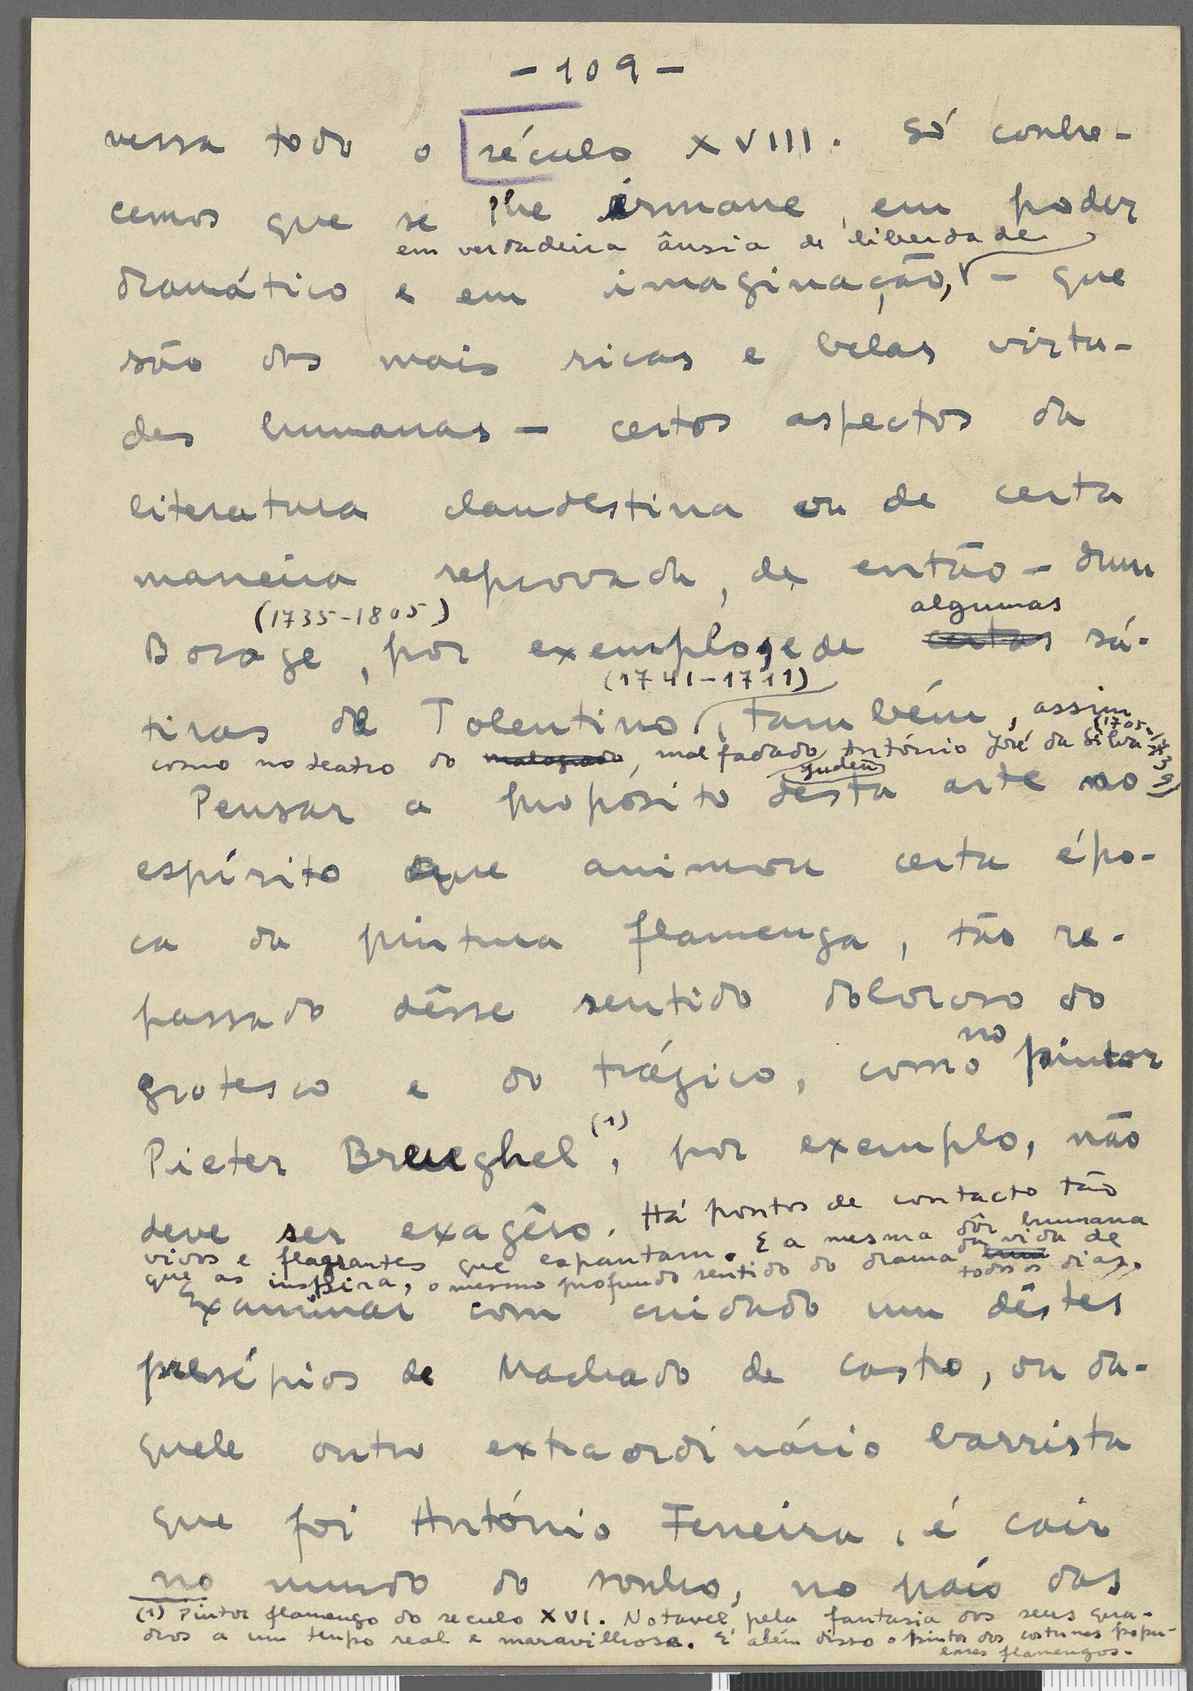 - 109 -
vessa todo o século XVIII. Só conhe-
cemos que se lhe irmane, em poder
em verdadeira ânsia de liberdade
dramático e em imaginação, - que
são das mais ricas e belas virtu-
des humanas - certos aspectos da
literatura clandestina ou de certa
maneira reprovada, de então - dum
(1735-1805) algumas
Bocage, por exemplo, e de certas sá-
(1741-1711)
tiras de Tolentino, também, assim
como no teatro do malogrado, malfadado António José da Silva (1705-1739)
judeu
Pensar a propósito desta arte no
espírito que animou certa épo-
ca da pintura flamenga, tão re-
passado dêsse sentido doloroso do
grotesco e do trágico, como no pintor
Pieter Brueghel (1), por exemplo, não
deve ser exagêro. Há pontos de contacto tão
vivos e flagrantes que espantam. E a mesma dôr humana
que as inspira, o mesmo profundo sentido do drama da vida de
todos os dias.
Examinar com cuidado um dêstes
presépios de Machado de Castro, ou da-
quele outro extraordinário barrista
que foi António Ferreira, é cair
no mundo do sonho, no país das
(1) Pintor flamengo do seculo XVI. Notavel pela fantasia dos seus qua-
dros a um tempo real e maravilhosa. É além disso o pintor dos costumes popu-
lares flamengos.